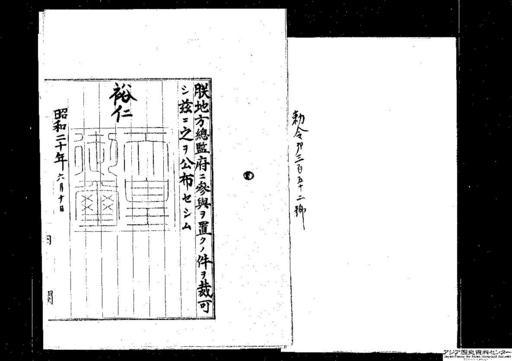 勅令第三百五十二號
朕地方總監府ニ參與ヲ置クノ件ヲ裁可
シ茲ニ之ヲ公布セシム
裕仁
天皇
御璽
昭和二十年六月十日
アジア歴史資料センター